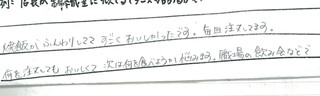 例: 店長の
炒飯が ふんわりしてて すごく おいしかったです。毎回注文してます。
何を注文しても おいしくて 次は何を食べようか悩みます。職場の飲み会などで